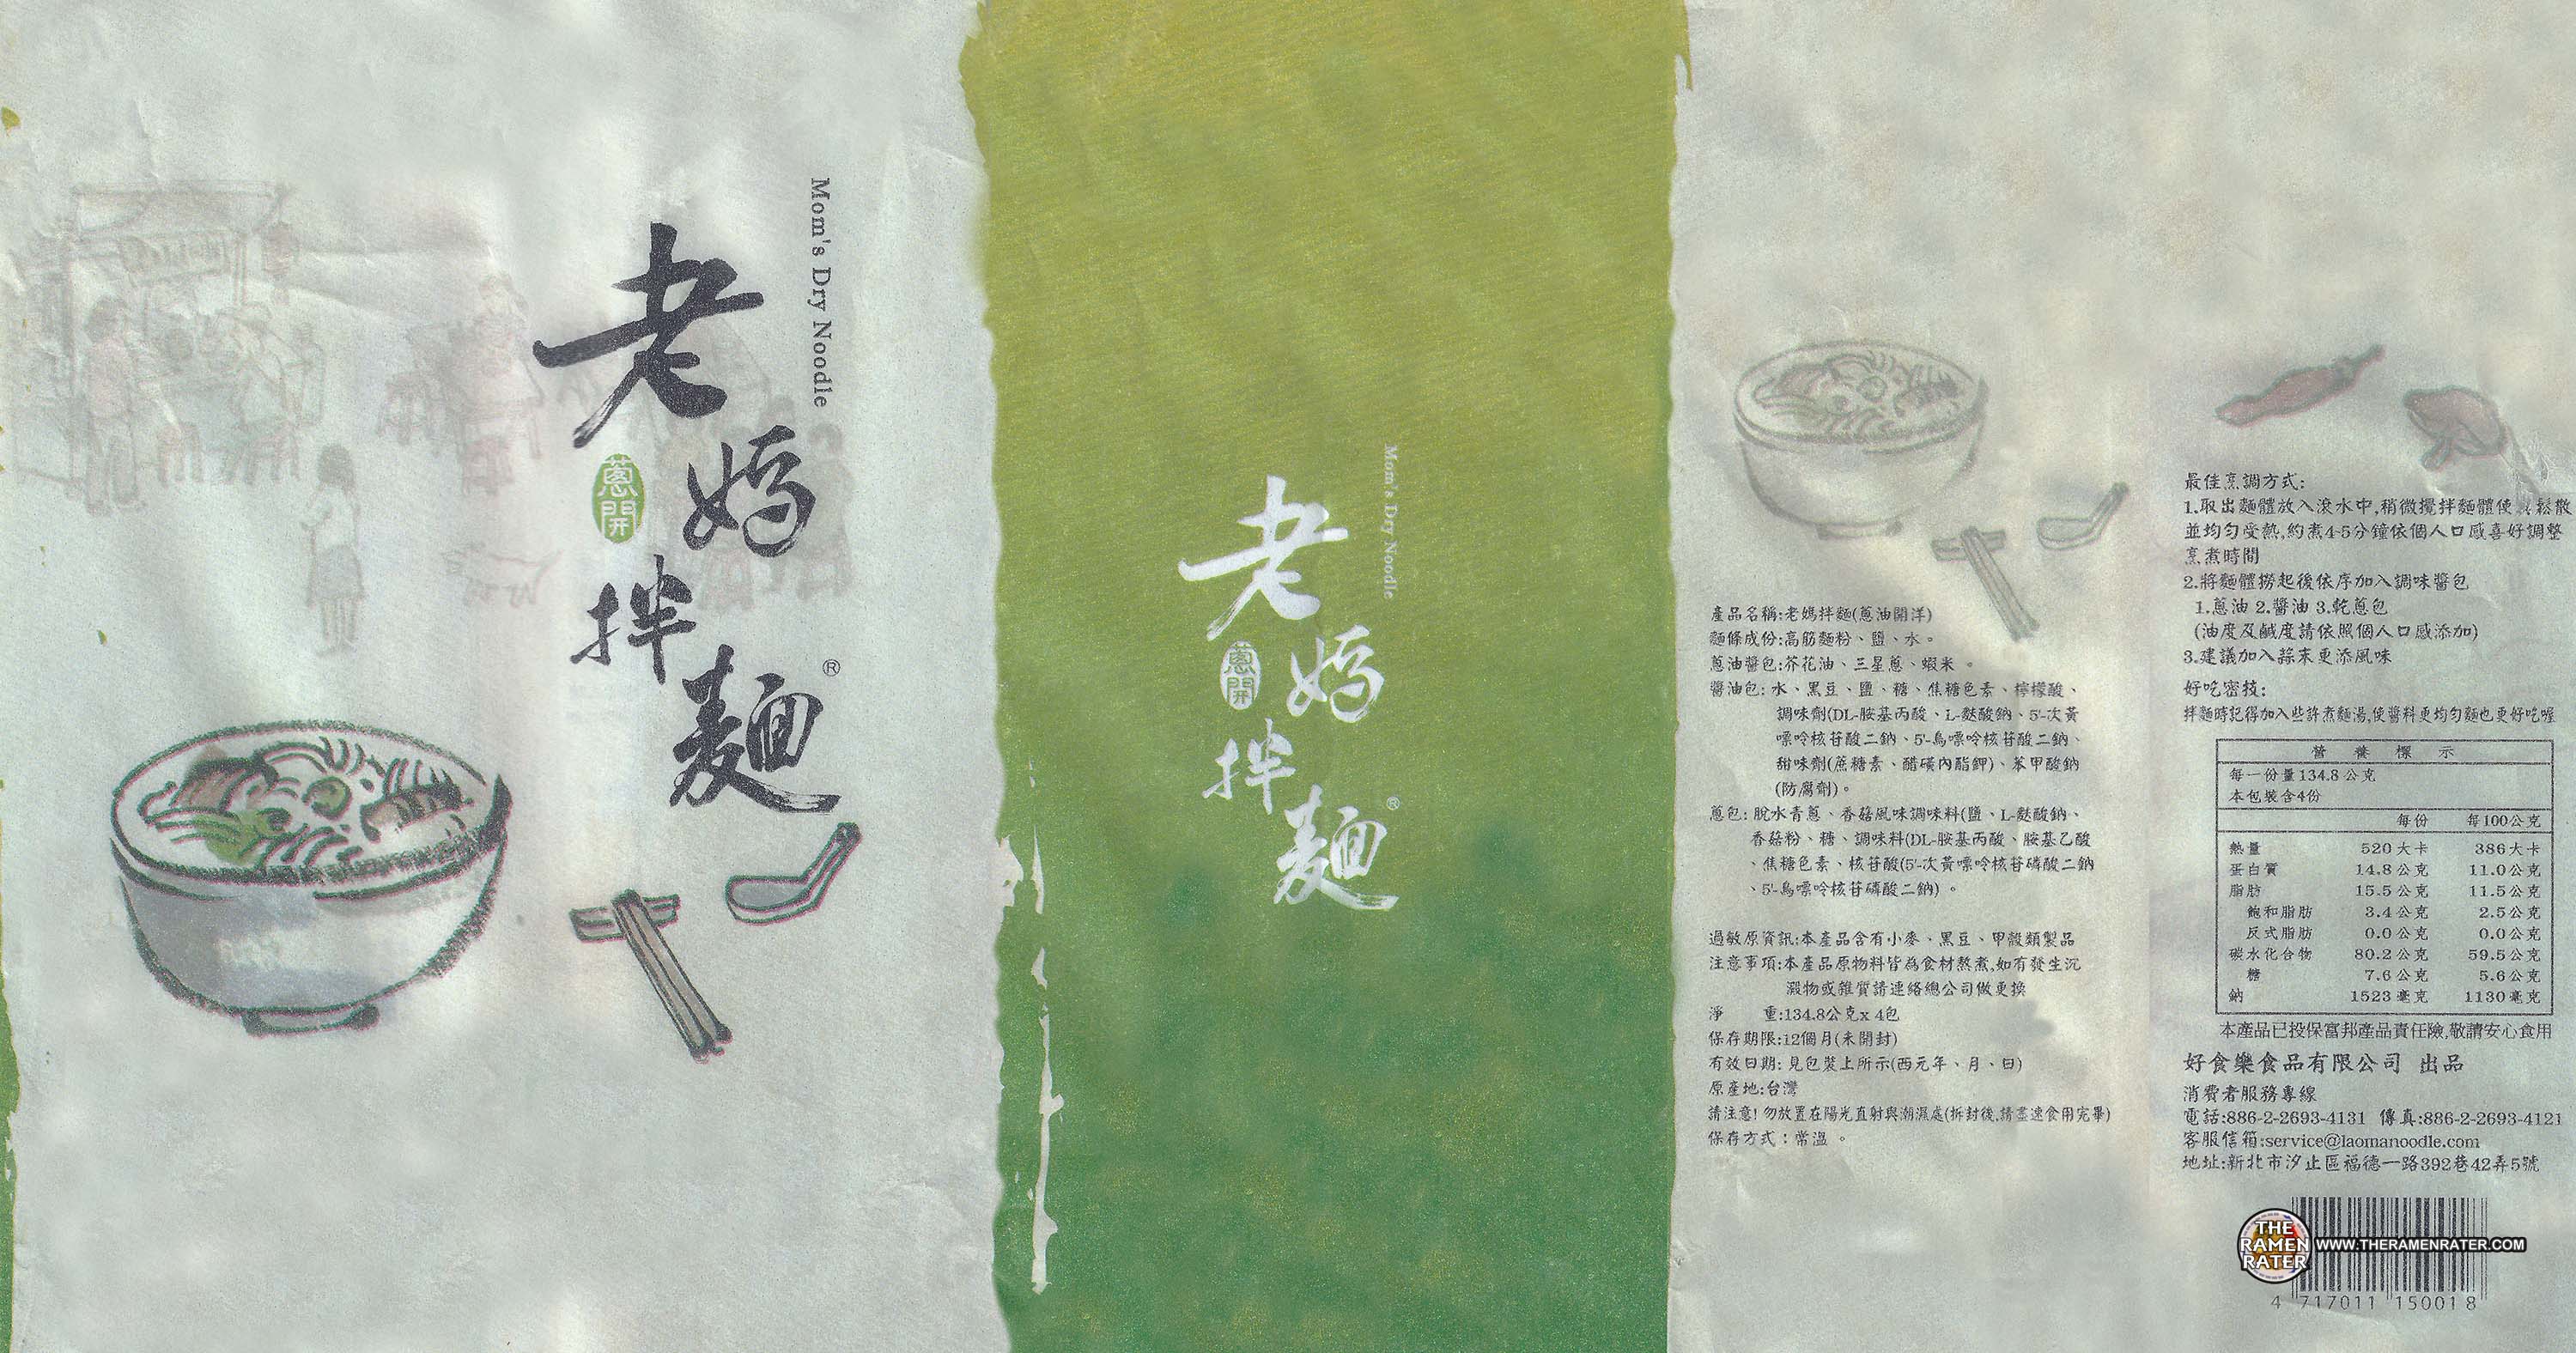 Mom's Dry Noodle
老媽拌麵®
蔥開
Mom's Dry Noodle
老媽拌麵®
蔥開
產品名稱:老媽拌麵(蔥油開洋)
麵條成份:高筋麵粉、鹽、水。
蔥油醬包:芥花油、三星蔥、蝦米。
醬油包:水、黑豆、鹽、糖、焦糖色素、檸檬酸、
調味劑(DL-胺基丙酸、L-麩酸鈉、5'-次黃
嘌呤核苷酸二鈉、5'-鳥嘌呤核苷酸二鈉、
甜味劑(蔗糖素、醋磺內酯鉀)、苯甲酸鈉
(防腐劑)。
蔥包:脫水青蔥、香菇風味調味料(鹽、L-麩酸鈉、
香菇粉、糖、調味料(DL-胺基丙酸、胺基乙酸
、焦糖色素、核苷酸(5'-次黃嘌呤核苷磷酸二鈉
、5'-鳥嘌呤核苷磷酸二鈉)。
過敏原資訊:本產品含有小麥、黑豆、甲殼類製品
注意事項:本產品原物料皆為食材熬煮,如有發生沉
澱物或雜質請連絡總公司做更換
淨 重:134.8公克x 4包
保存期限:12個月(未開封)
有效日期:見包裝上所示(西元年、月、日)
原產地:台灣
請注意!勿放置在陽光直射與潮濕處(拆封後,請盡速食用完畢)
保存方式:常溫。
最佳烹調方式:
1.取出麵體放入滾水中,稍微攪拌麵體使 鬆散
並均勻受熱,約煮4-5分鐘依個人口感喜好調整
烹煮時間
2.將麵體撈起後依序加入調味醬包
1.蔥油 2.醬油 3.乾蔥包
(油度及鹹度請依照個人口感添加)
3.建議加入蒜末更添風味
好吃密技:
拌麵時記得加入些許煮麵湯,使醬料更均勻麵也更好吃喔
營養標示
每一份量134.8公克
本包裝含4份
每份 每100公克
熱量 520大卡 386大卡
蛋白質 14.8公克 11.0公克
脂肪 15.5公克 11.5公克
飽和脂肪 3.4公克 2.5公克
反式脂肪 0.0公克 0.0公克
碳水化合物 80.2公克 59.5公克
糖 7.6公克 5.6公克
鈉 1523毫克 1130毫克
本產品已投保富邦產品責任險,敬請安心食用
好食樂食品有限公司 出品
消費者服務專線
電話:886-2-2693-4131 傳真:886-2-2693-4121
客服信箱:service@laomanoodle.com
地址:新北市汐止區福德一路392巷42弄5號
THE RAMEN RATER
WWW.THERAMENRATER.COM
4 717011 150018